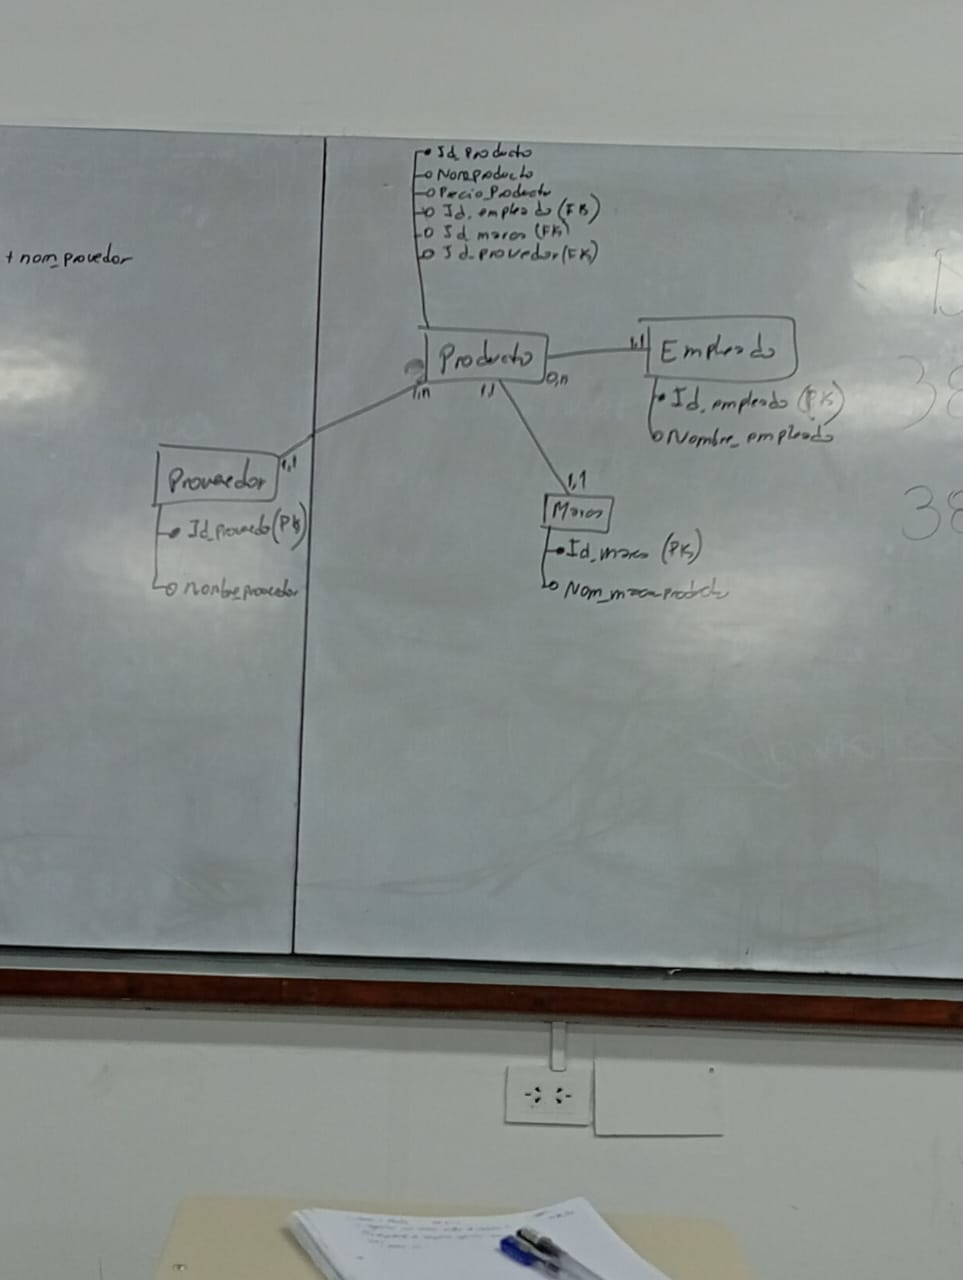 + nom_provedor
Id_Producto
Nomproducto
Precio_Producto
Id_empleado (FK)
Id_marca (FK)
Id_provedor (FK)
Producto
1,n
1,1
0,n
1,1
Empleado
Id_empleado (PK)
Nombre_empleado
1,1
Proveedor
Id_proveedo (PK)
nombreproveedor
1,1
Marca
Id_marca (PK)
38
38